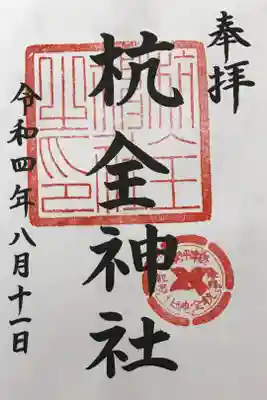 奉拝
杭全神社
令和四年八月十一日